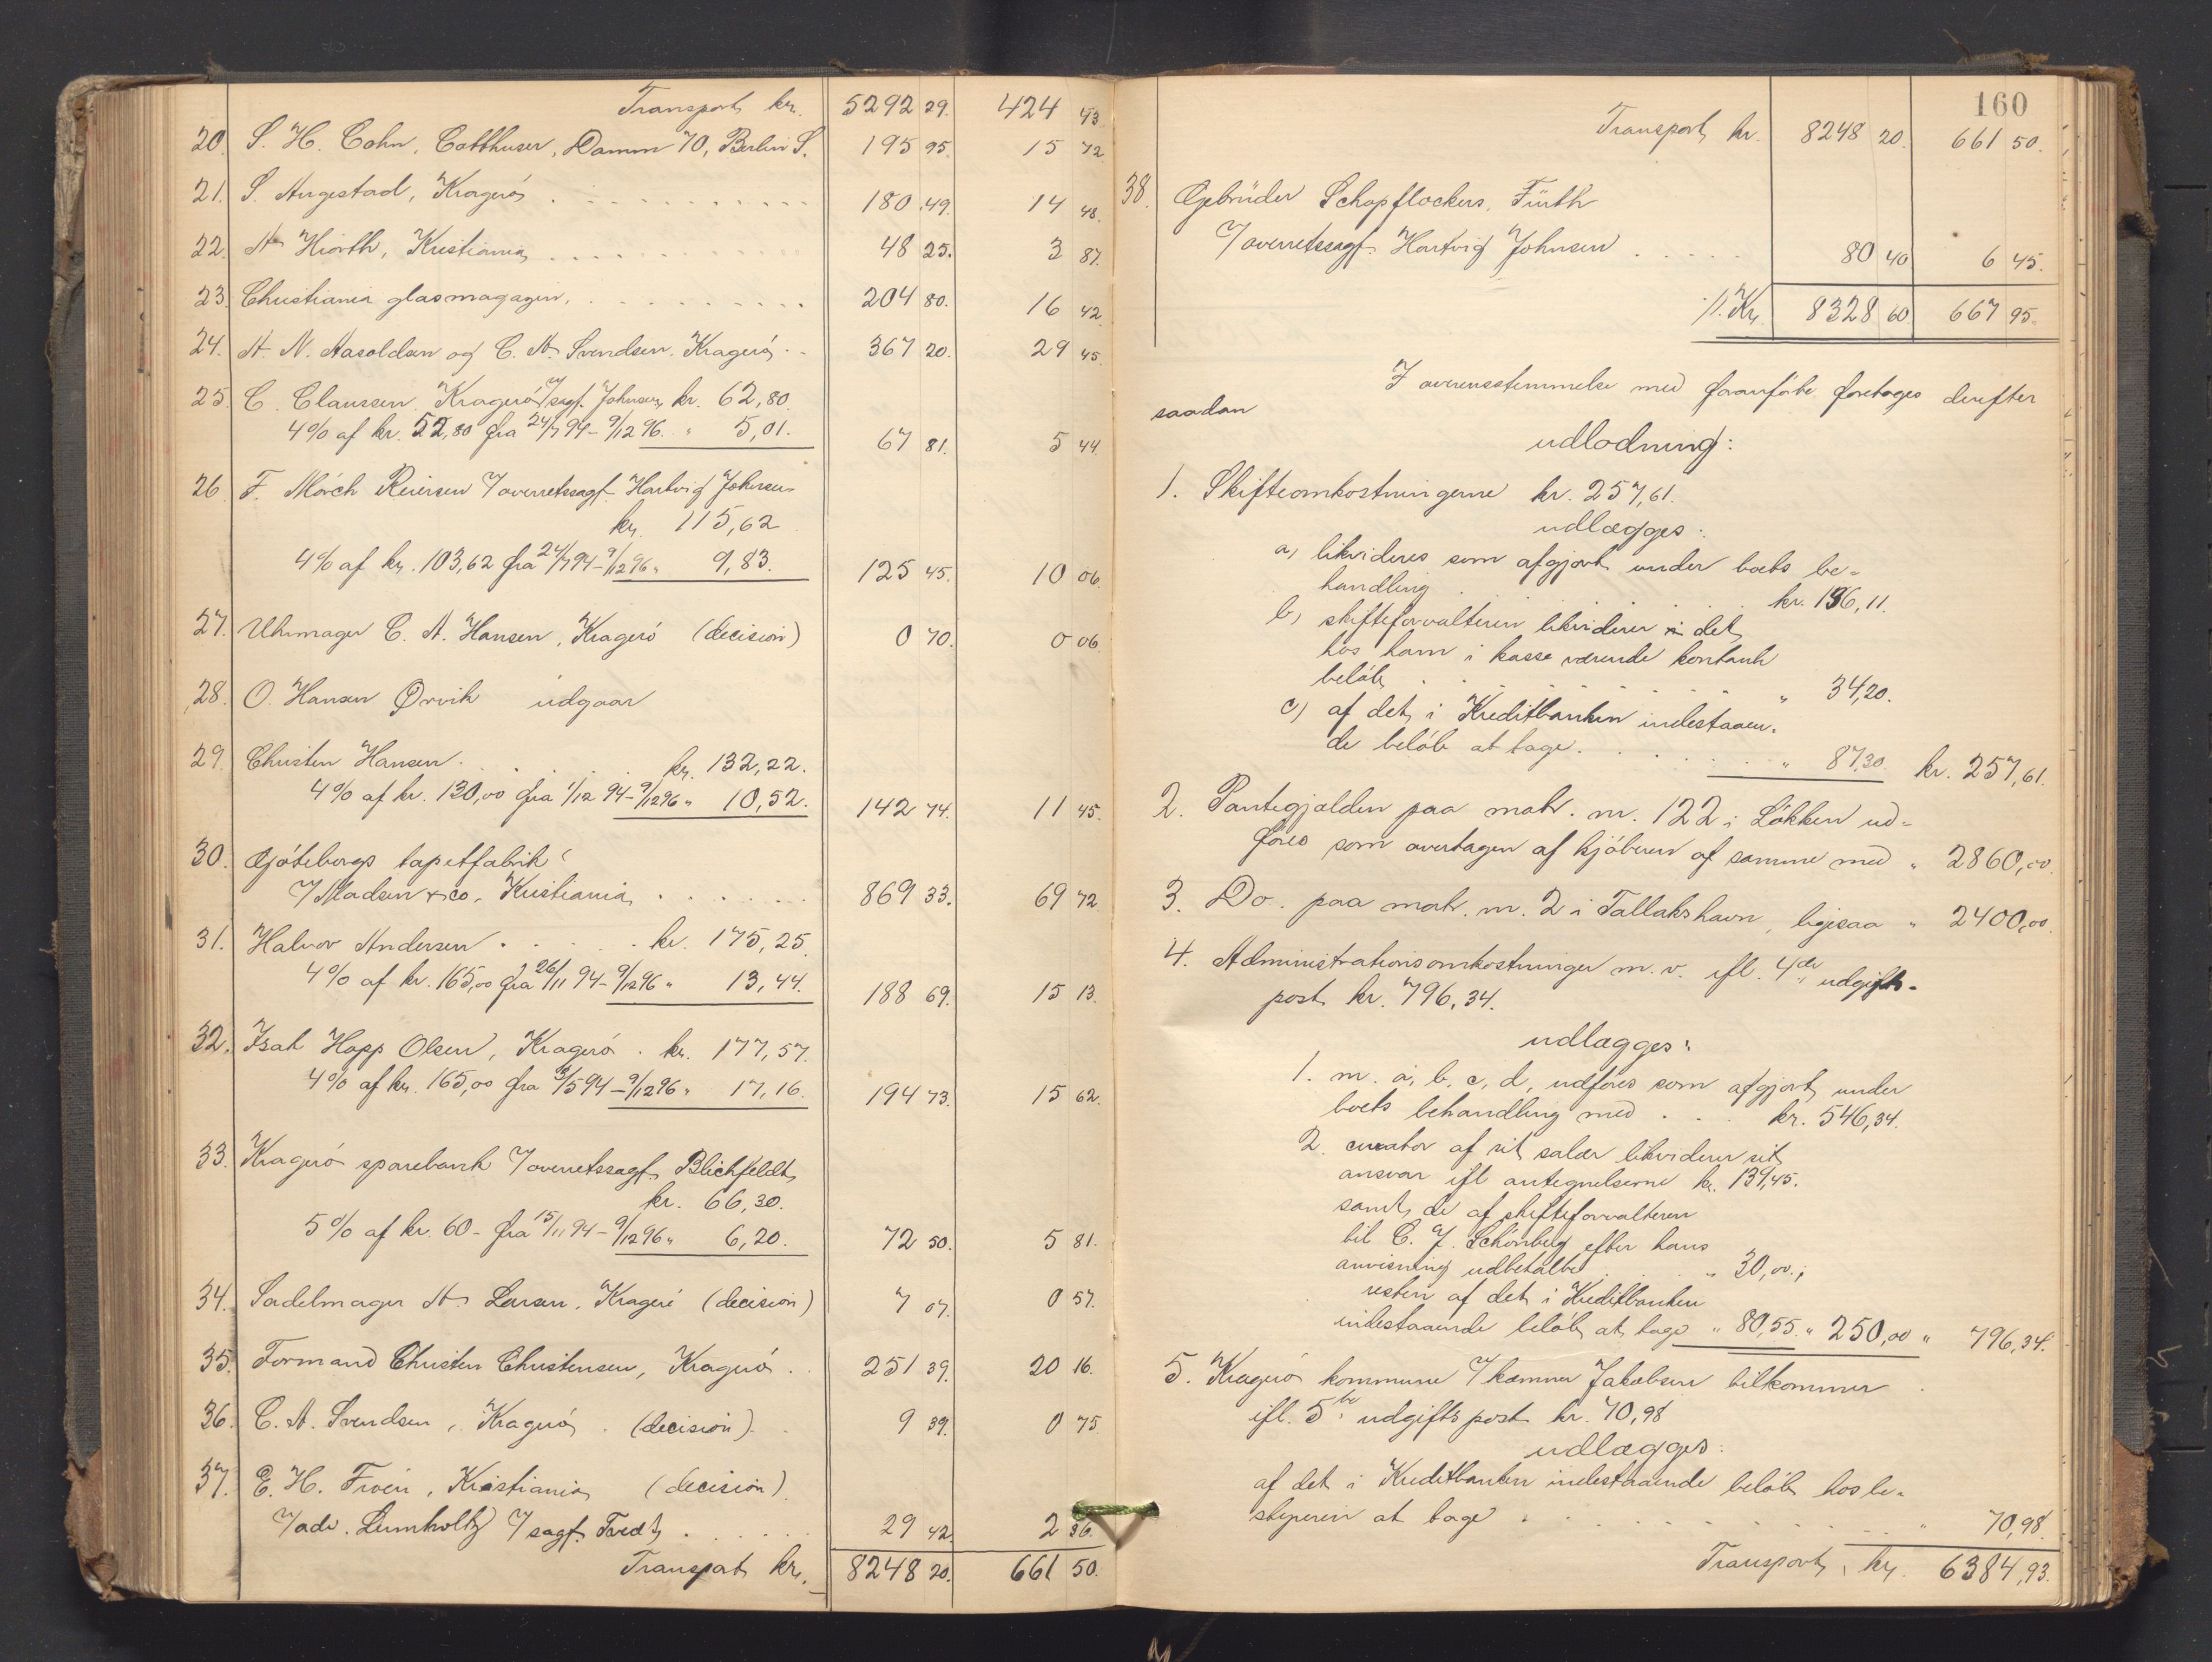 Transport kr. 5292 29. 424 43
20. S. H. Cohn, Cottbuser, Damm 70, Berlin S. 195 95. 15 72
21. S. Angestad, Kragerö . . . . . . . . . . 180 49. 14 48.
22. A Hiorth, Kristiania . . . . . . . . . 48 25. 3 87.
23. Christiania glasmagazin, . . . . . . . . . 204 80. 16 42.
24. A. N. Aasoldsen og C. A. Svendsen. Kragerö . . 367 20. 29 45.
25. C. Claussen. Kragerö ⁊ sagf. Johnsen, kr. 62,80.
4% af kr. 52,80 fra 24/7 94 - 9/12 96. " 5,01. 67 81. 5 44.
26. F. Mörch Reiersen ⁊ overretssagf. Hartvig Johnsen
kr. 115,62
4% af kr. 103,62 fra 24/7 94 - 9/12 96 " 9,83. 125 45. 10 06.
27. Uhrmager C. A. Hansen, Kragerö (decision) 0 70. 0 06.
28. O. Hansen Ørvik udgaar
29. Christen Hansen . . . . kr. 132,22.
4% af kr. 130,00 fra 1/12 94 - 9/12 96 " 10,52. 142 74. 11 45.
30. Gjöteborgs tapetfabrik
⁊ Madsen & co. Kristiania . . . . . . 869 33. 69 72
31. Halvor Andersen . . . . . kr. 175,25.
4% af kr. 165,00 fra 26/11 94 - 9/12 96 " 13,44. 188 69. 15 13.
32. Isak Hopp Olsen, Kragerö . kr. 177,57.
4% af kr. 165,00 fra 3/5 94 - 9/12 96 " 17,16. 194 73. 15 62.
33. Kragerö sparebank ⁊ overretssagf. Blichfeldt
kr. 66,30.
5% af kr. 60 - fra 15/11 94 - 9/12 96 " 6,20. 72 50. 5 81.
34. Sadelmager A. Larsen, Kragerö (decision) 7 07. 0 57.
35. Formand Christen Christensen, Kragerö . . 251 39. 20 16.
36. C. A. Svendsen, Kragerö . (decision) . . 9 39. 0 75
37. E. H. Froën, Kristiania (decision)
⁊ adv. Lumholtz ⁊ sagf. Tvedt . . . . . 29 42. 2 36.
Transport kr. 8248 20. 661 50.
160
Transport kr. 8248 20. 661 50.
38. Gebrüder Schopflockers, Fürth
⁊ overretssagf. Hartvig Johnsen . . . . . 80 40 6 45.
Kr. 8328 60 667 95.
I overensstemmelse med foranförte foretages derefter
saadan
udlodning:
1. Skifteomkostningerne kr. 257,61.
udlægges:
a) likvideres som afgjort under boets be-
handling . . . . . . . kr. 136,11.
b) skifteforvalteren likviderer i det
hos ham i kasse værende kontante
beløb . . . . . . . . . . " 34,20.
c) af det i Kreditbanken indestaaen-
de beløb at tage . . . . . . " 87,30. kr. 257,61.
2. Pantegjælden paa matr. nr. 122 i Lökken ud-
föres som overtagen af kjöberen af samme med " 2860,00.
3. Do. paa matr. nr. 2 i Tallakshavn, ligesaa " 2400,00.
4. Administrationsomkostninger m. v. ifl. 4de udgifts-
post kr. 796,34.
udlægges:
1. nr. a, b, c, d, udföres som afgjort under
boets behandling med . . . kr. 546,34.
2. curator af sit salær likviderer sit
ansvar ifl antegnelserne kr. 139,45.
samt de af skifteforvalteren
til C. J. Schönberg efter hans
anvisning udbetalte . . . . " 30,00.;
resten af det i Kreditbanken
indestaaende beløb at tage " 80,55. " 250,00 " 796,34.
5. Kragerö kommune ⁊ kæmner Jakobsen tilkommer
ifl. 5te udgiftspost kr. 70,98
udlægges:
af det i Kreditbanken indestaaende beløb hos be-
styreren at tage . . . . . . . . . . " 70,98.
Transport, kr. 6384,93.